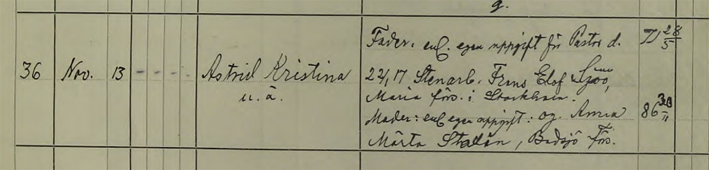 g.
Fader: enl. egen uppgift för Pastor d. 71 28/5
36 Nov. 13 - - - - Astrid Kristina 22/1 17 Stenarb. Frans Elof Sjöö,
u. ä. Maria förs. i Stockholm.
Moder: enl. egen uppgift: og. Anna 86 30/11
Märta Stallin, Badsjö Förs.